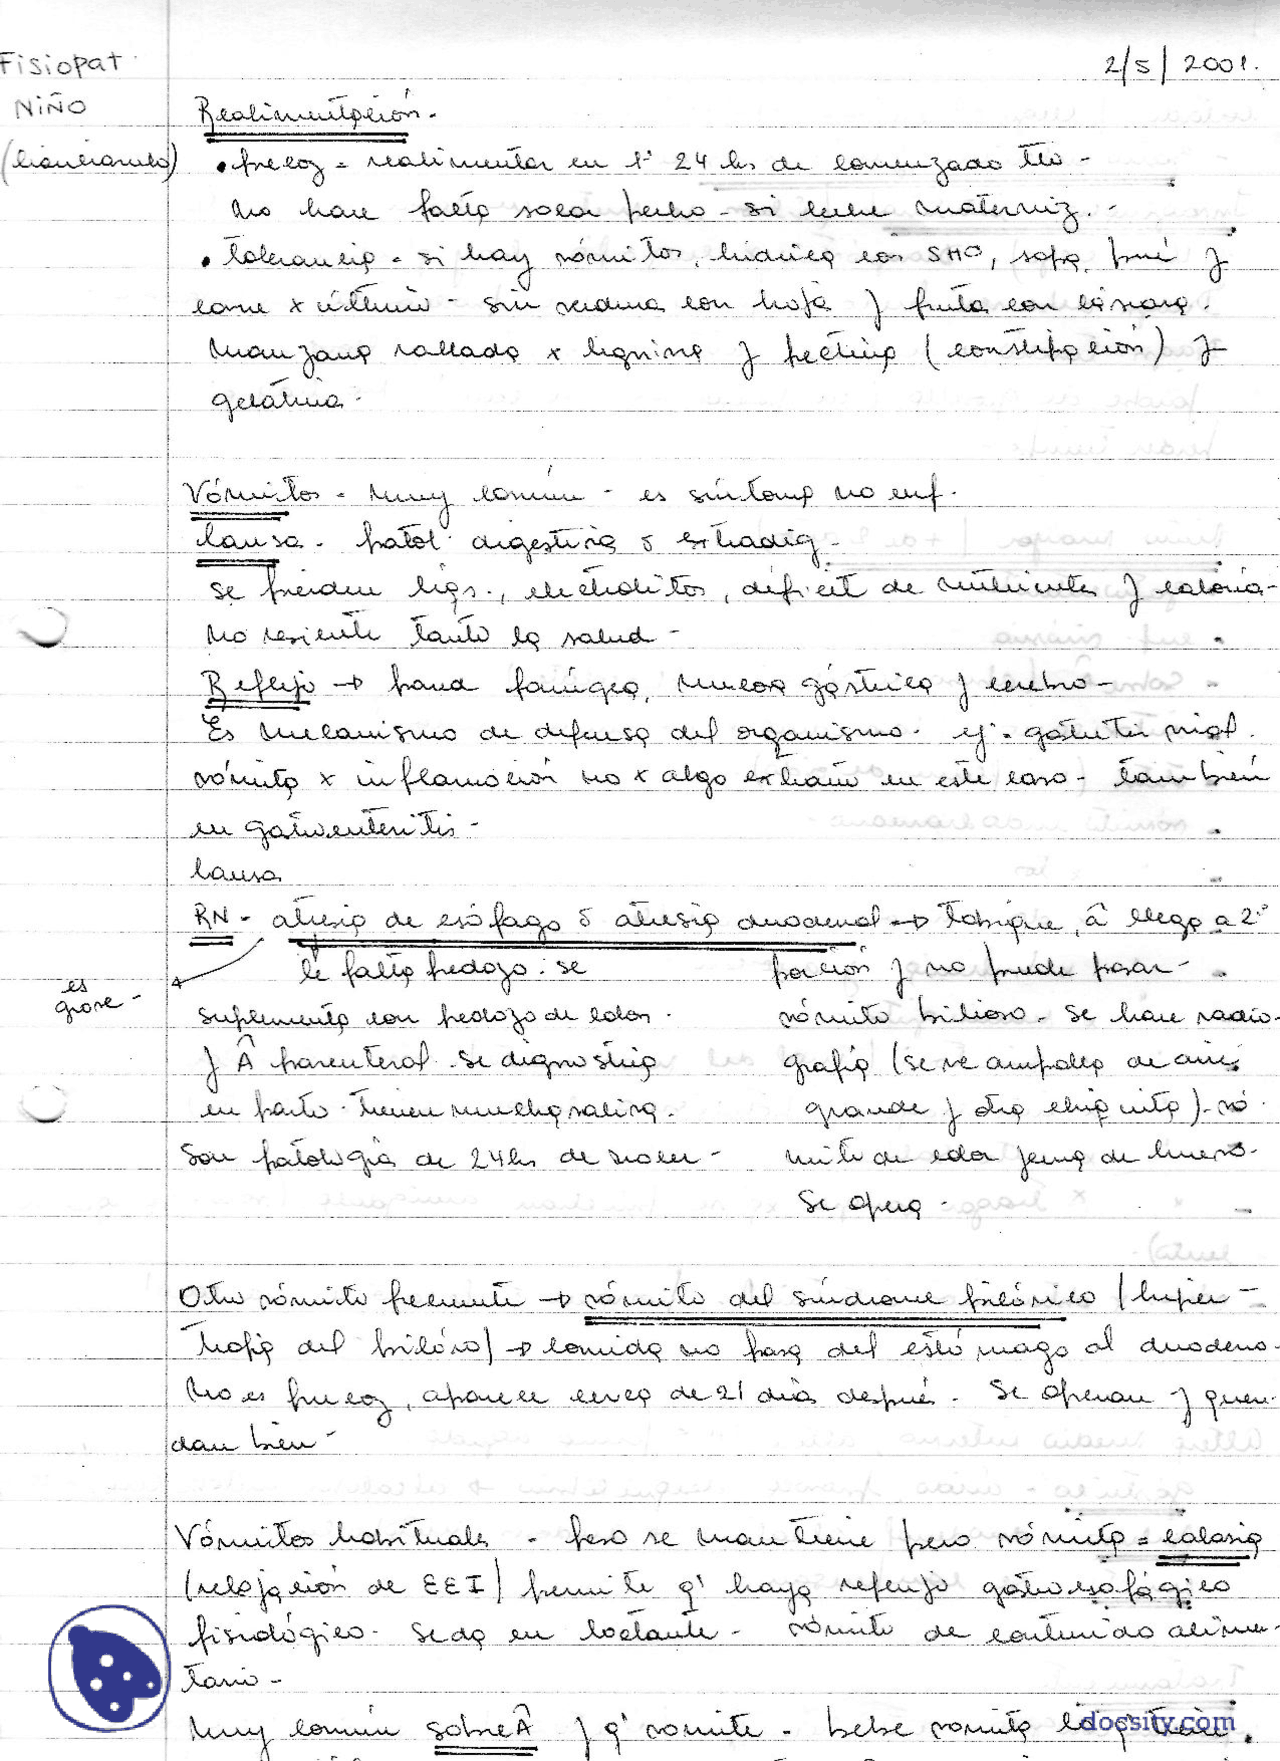 Fisiopat.
2/5/2001.
NIÑO
Realimentación.
• precoz = realimentar en 1ª 24 hs de comenzado tto -
No hace falta sacar pecho - si leche materniz. -
• tolerancia = si hay vómitos, hídrica con SHO, sopa, puré y
carne x último - sin verdura con hoja y fruta con cáscara.
Manzana rallada x lignina y pectina (constipación) y
gelatina.
Vómitos = Muy común - es síntoma no enf.
Causa - patol. digestiva ó extradig -
se pierden líqs., electrolitos, déficit de nutrientes y caloría -
No resiente tanto la salud -
Reflejo → faríngea, mucosa gástrica y cerebro -
Es mecanismo de defensa del organismo. ej: gastritis
vómito x inflamación no x algo extraño en este caso - también
en gastroenteritis -
Causa
RN - atresia de esófago ó atresia duodenal → tabique, Â llega a 2ª
le falta pedazo: se
porción y no puede pasar -
es
grave -
suplementa con pedazo de colon.
vómito bilioso - Se hace radio-
y Â parenteral. Se diagnostica
grafía (se ve ampolla de aire
en parto. Tienen mucha saliva.
grande y otra chiquita) - vó
Son patología de 24 hs de nacer -
mito de color yema de huevo.
Se opera -
Otro vómito frecuente → vómito del síndrome pilórico (hiper -
trofia del piloro) → comida no pasa del estómago al duodeno.
No es precoz, aparece cerca de 21 días después. Se operan y quen-
dan bien -
Vómitos habituales - peso se mantiene pero vómita = calasia
(relajación de EEI) permite q' haya reflujo gastroesofágico
fisiológico. Se da en lactante - vómito de contenido alimen-
tario -
Muy común sobre Â y q' vomite - bebe vomita
docsity.com